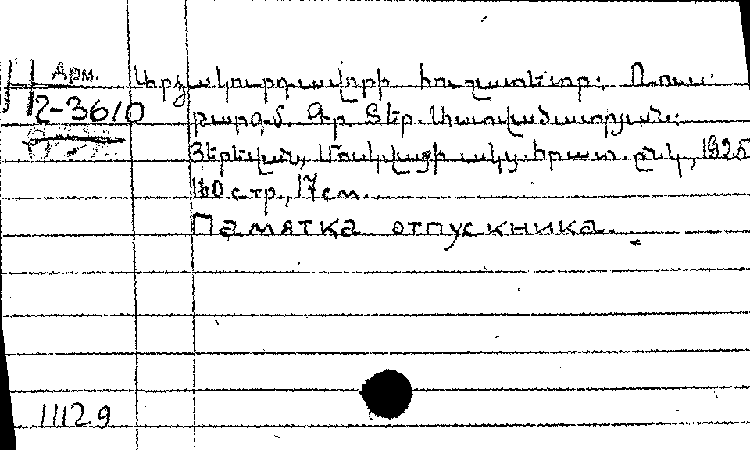 Арм.
2-3610
Արձակուրդավորի հուշատետր: Ռուս.
թարգմ. Գր. Տեր-Աստվածատրյան:
Յերեվան, Մոսկվայի ակց. հրատ. ընկ., 1925
140 стр., 17 см.
Памятка отпускника.
11129